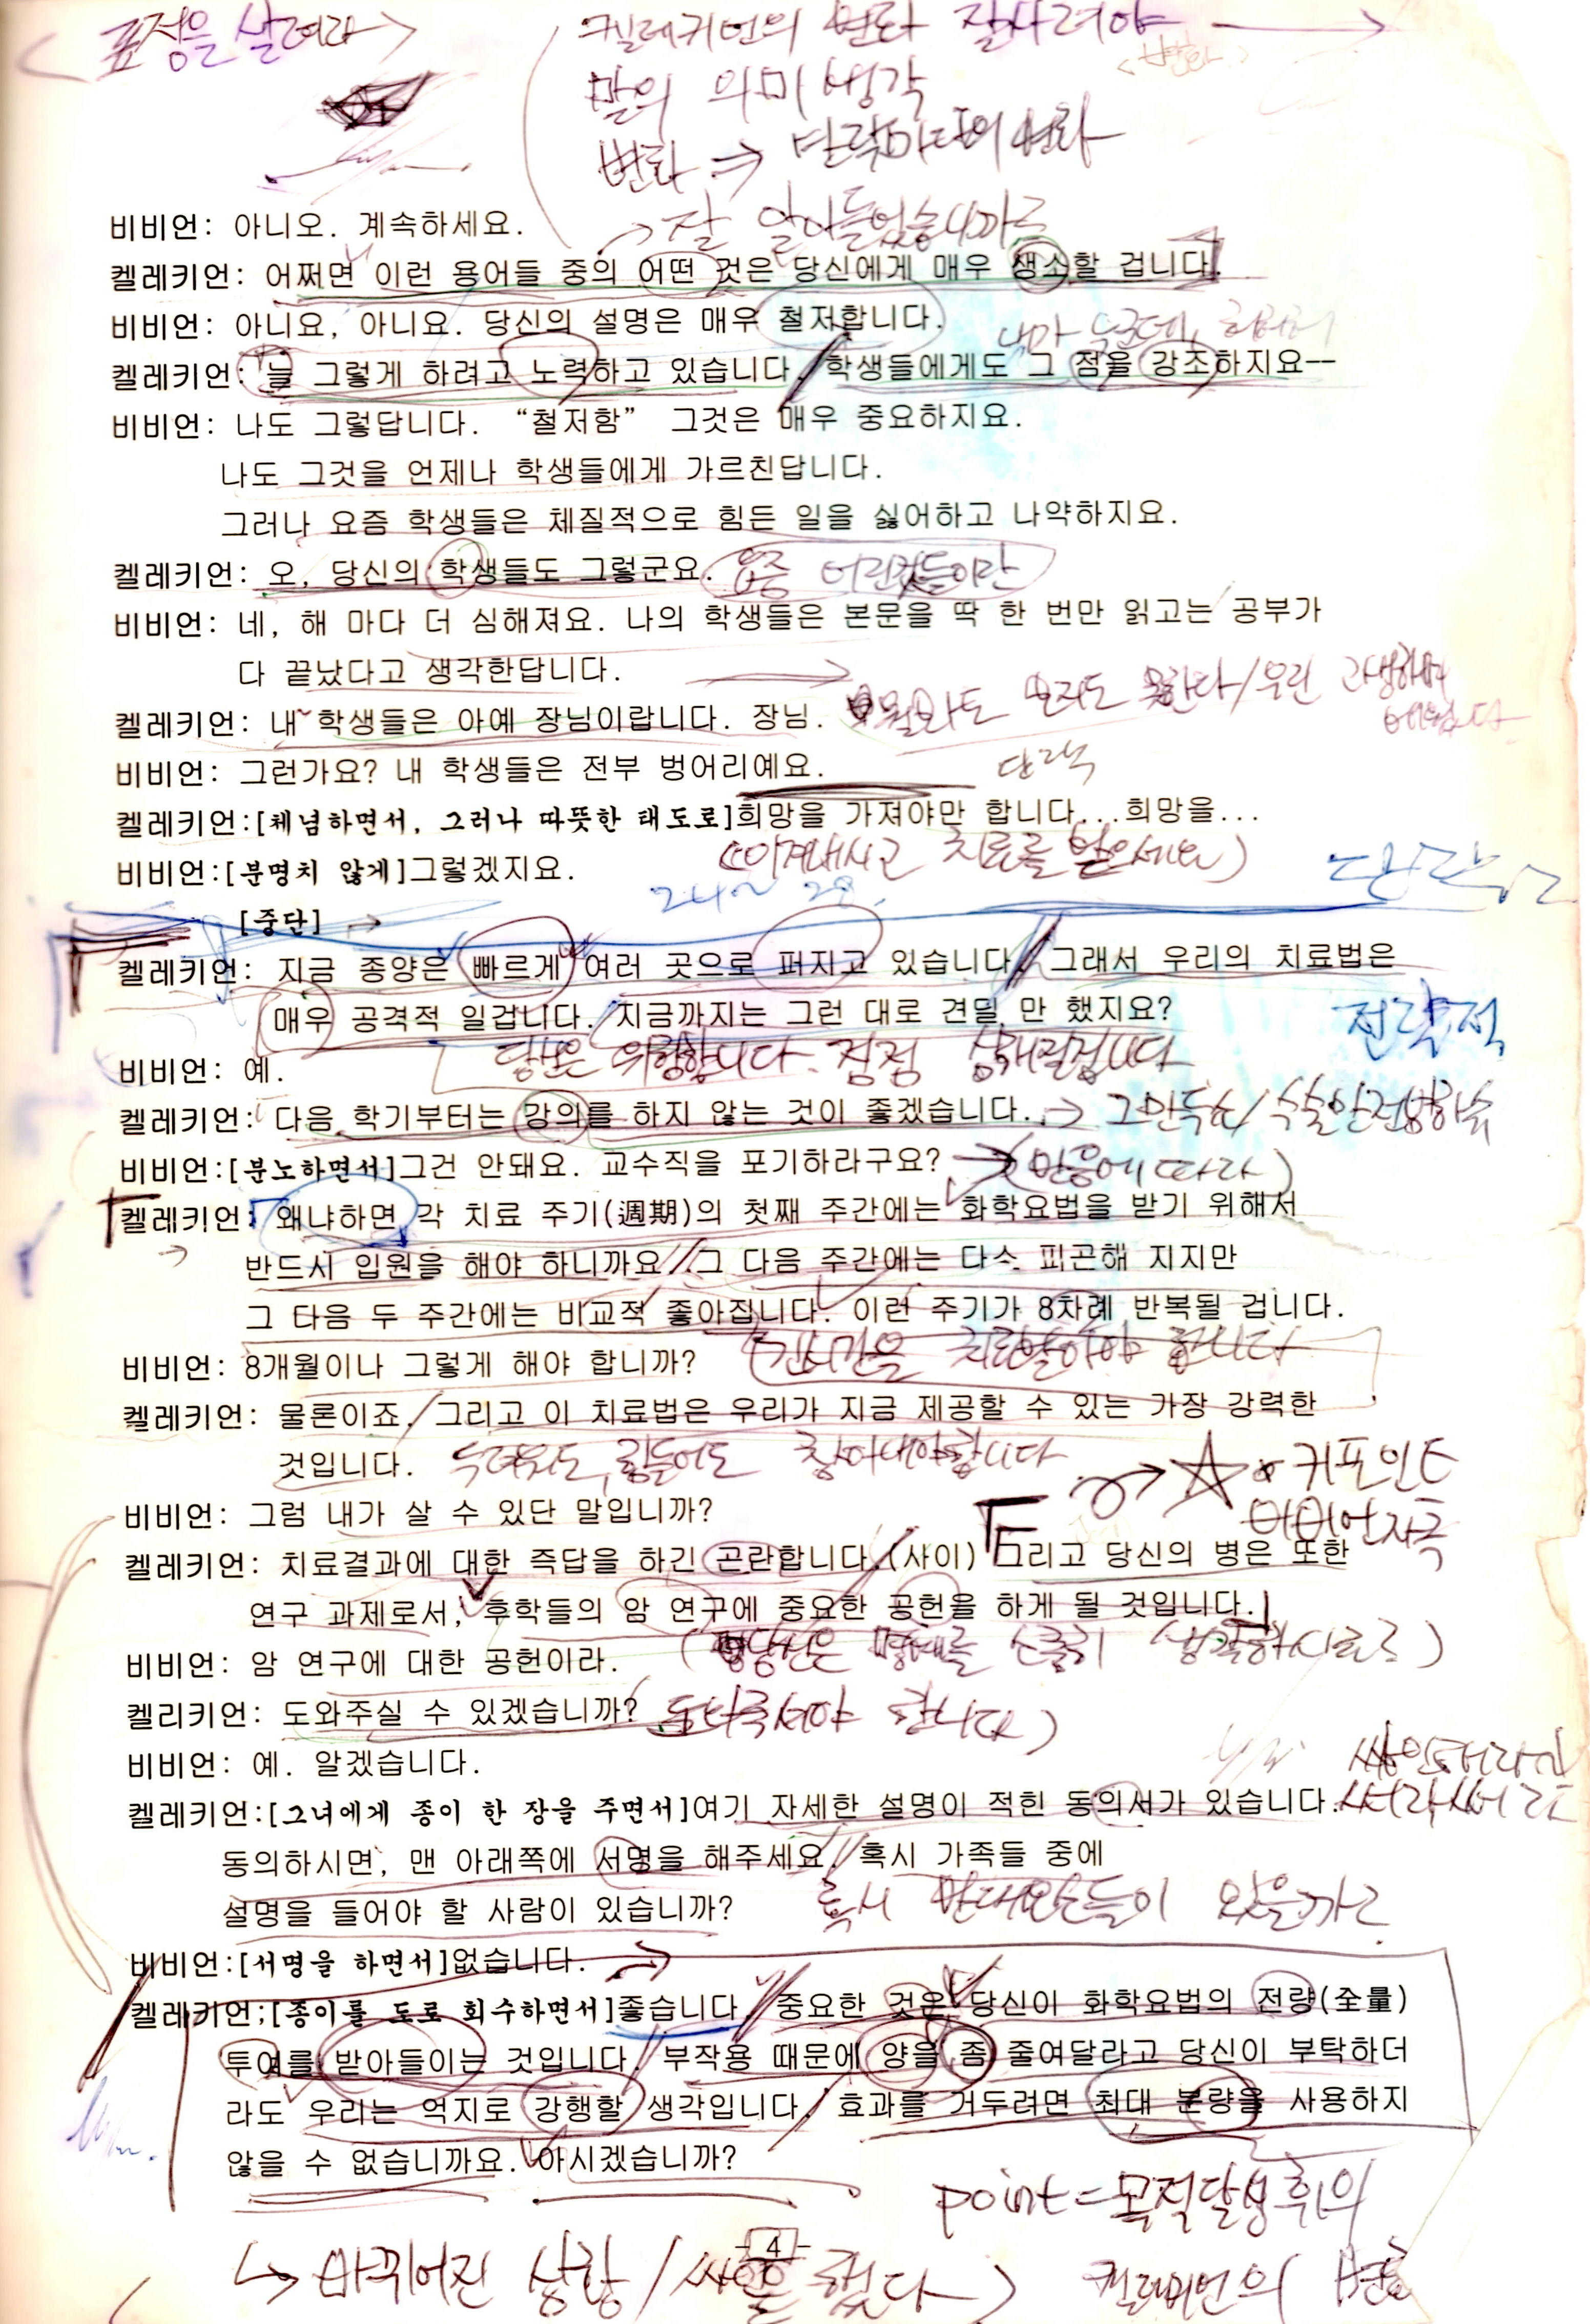 <표정을 살려라>
켈레키언의 변화 잘살려야
<변화>
말의 의미 생각
변화 ⇒ 단락마다의 변화
비비언: 아니오. 계속하세요.
→ 잘 알아들었습니까?
켈레키언: 어쩌면 이런 용어들 중의 어떤 것은 당신에게 매우 생소할 겁니다.
비비언: 아니요, 아니요. 당신의 설명은 매우 철저합니다.
켈레키언: 늘 그렇게 하려고 노력하고 있습니다. 학생들에게도 그 점을 강조하지요--
비비언: 나도 그렇답니다. “철저함” 그것은 매우 중요하지요.
나도 그것을 언제나 학생들에게 가르친답니다.
그러나 요즘 학생들은 체질적으로 힘든 일을 싫어하고 나약하지요.
켈레키언: 오, 당신의 학생들도 그렇군요. 요즘 어린것들이란
비비언: 네, 해 마다 더 심해져요. 나의 학생들은 본문을 딱 한 번만 읽고는 공부가
다 끝났다고 생각한답니다.
켈레키언: 내 학생들은 아예 장님이랍니다. 장님.
비비언: 그런가요? 내 학생들은 전부 벙어리예요.
단락
켈레키언:[체념하면서, 그러나 따뜻한 태도로]희망을 가져야만 합니다...희망을...
비비언:[분명치 않게]그렇겠지요.
치료를 받으세요)
단락
24~28
[중단] →
켈레키언: 지금 종양은 빠르게 여러 곳으로 퍼지고 있습니다. 그래서 우리의 치료법은
매우 공격적 일겁니다. 지금까지는 그런 대로 견딜 만 했지요?
전략적
비비언: 예.
당신은 위험합니다. 점점
켈레키언: 다음 학기부터는 강의를 하지 않는 것이 좋겠습니다. →
비비언:[분노하면서]그건 안돼요. 교수직을 포기하라구요?
켈레키언: 왜냐하면 각 치료 주기(週期)의 첫째 주간에는 화학요법을 받기 위해서
반드시 입원을 해야 하니까요. 그 다음 주간에는 다소 피곤해 지지만
그 다음 두 주간에는 비교적 좋아집니다. 이런 주기가 8차례 반복될 겁니다.
비비언: 8개월이나 그렇게 해야 합니까?
(긴시간을 치료받아야 합니다
켈레키언: 물론이죠. 그리고 이 치료법은 우리가 지금 제공할 수 있는 가장 강력한
것입니다.
두려워도, 힘들어도 참아내야합니다
→ ☆ 키포인트
비비언자극
비비언: 그럼 내가 살 수 있단 말입니까?
켈레키언: 치료결과에 대한 즉답을 하긴 곤란합니다.(사이) 그리고 당신의 병은 또한
연구 과제로서, 후학들의 암 연구에 중요한 공헌을 하게 될 것입니다.
비비언: 암 연구에 대한 공헌이라.
켈리키언: 도와주실 수 있겠습니까? 도와주셔야 합니다)
비비언: 예. 알겠습니다.
켈레키언:[그녀에게 종이 한 장을 주면서]여기 자세한 설명이 적힌 동의서가 있습니다.
동의하시면, 맨 아래쪽에 서명을 해주세요. 혹시 가족들 중에
설명을 들어야 할 사람이 있습니까?
비비언:[서명을 하면서]없습니다. →
켈레키언:[종이를 도로 회수하면서]좋습니다. 중요한 것은 당신이 화학요법의 전량(全量)
투여를 받아들이는 것입니다. 부작용 때문에 양을 좀 줄여달라고 당신이 부탁하더
라도 우리는 억지로 강행할 생각입니다. 효과를 거두려면 최대 분량을 사용하지
않을 수 없습니까요. 아시겠습니까?
point=목적달성후의
켈레키언의 변화
-4-
→ 바뀌어진 상황/싸인을 했다